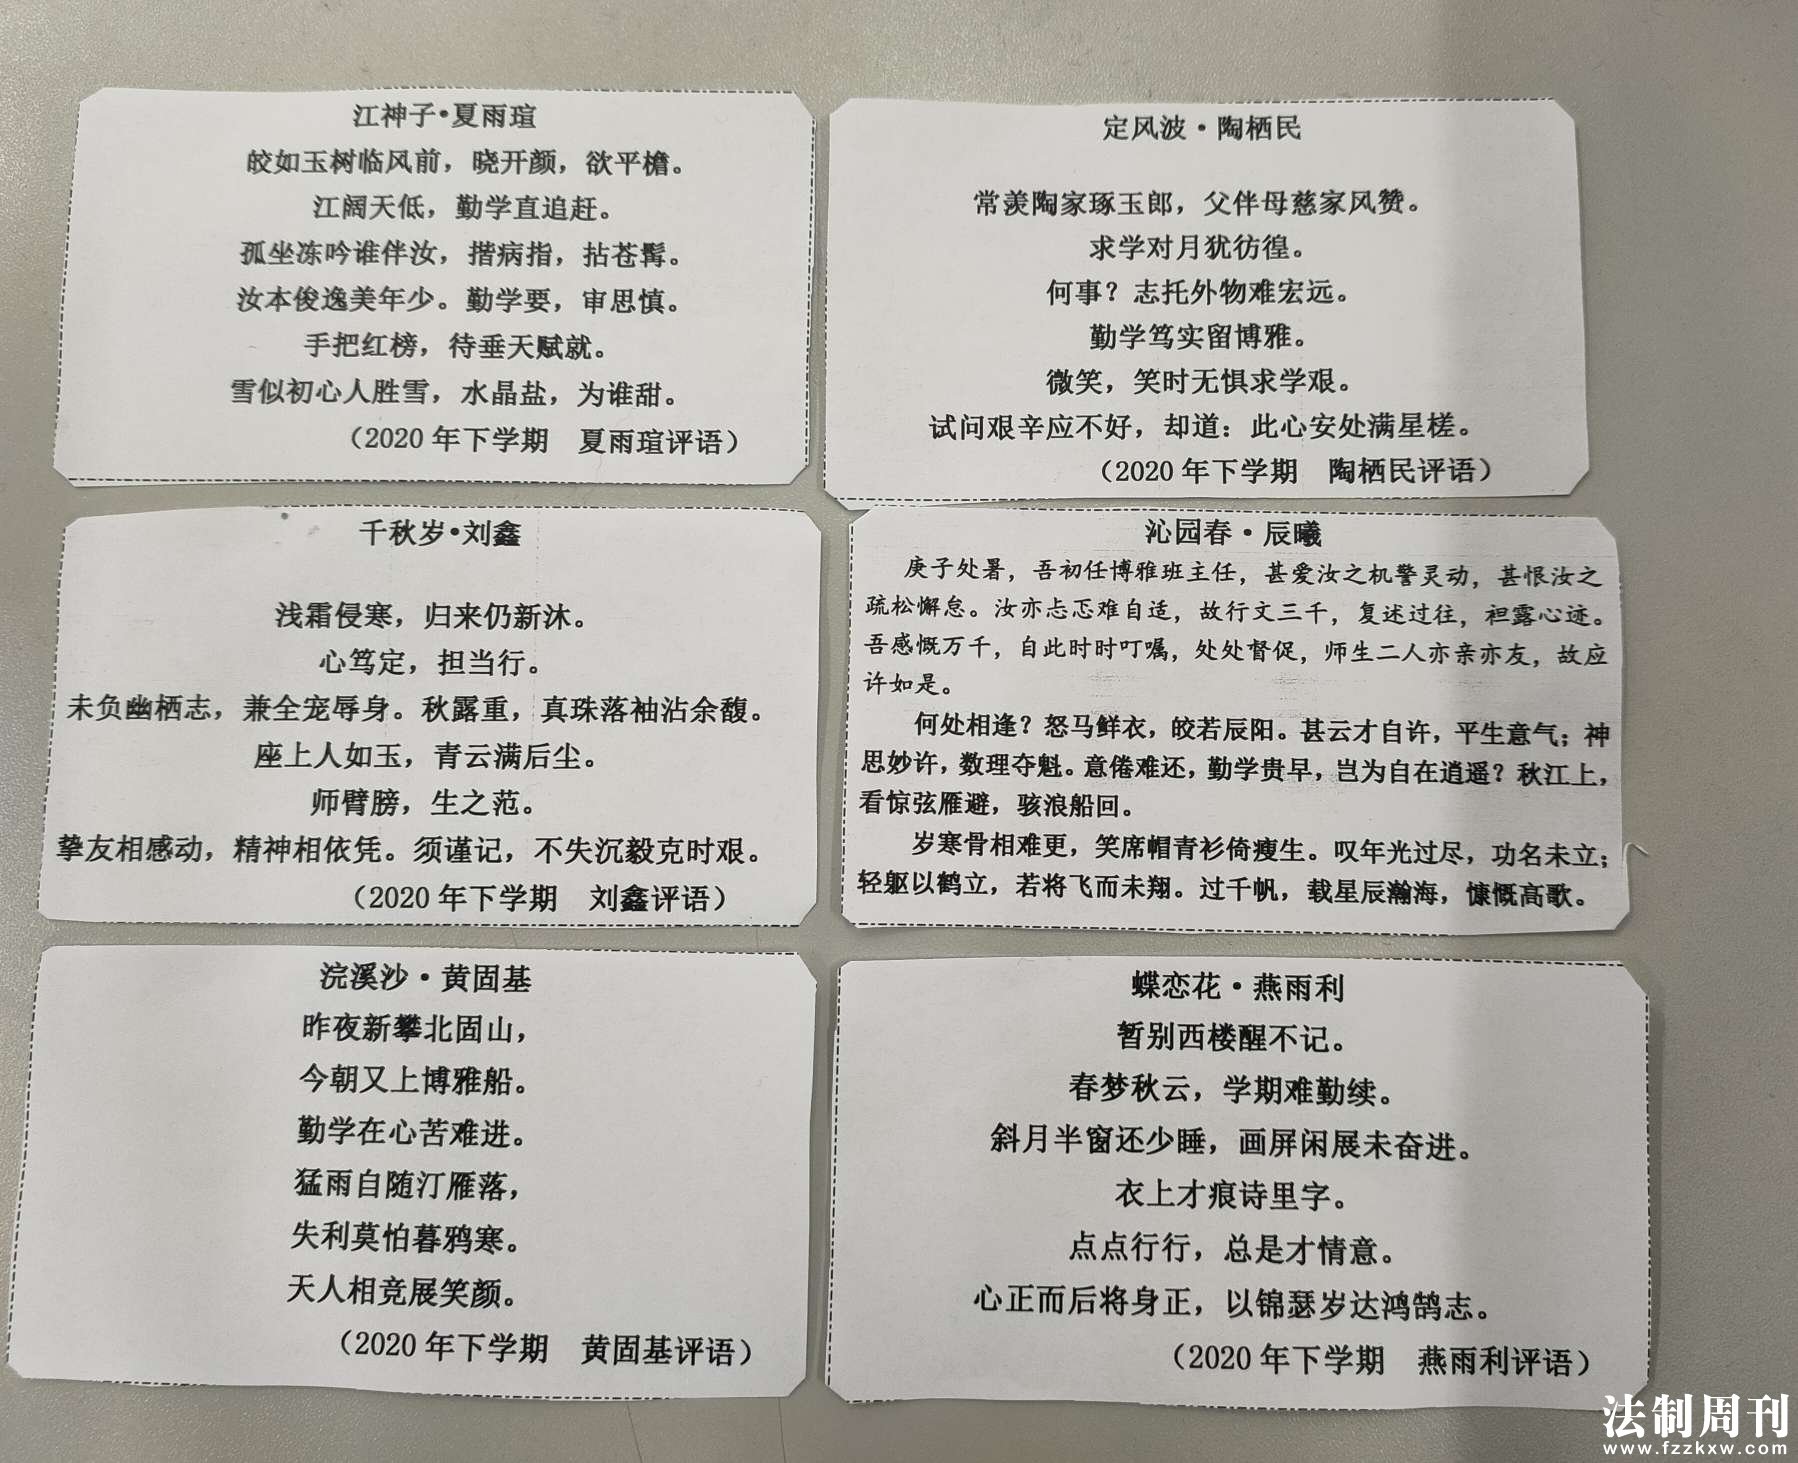 江神子•夏雨瑄
皎如玉树临风前，晓开颜，欲平檐。
江阔天低，勤学直追赶。
孤坐冻吟谁伴汝，揩病指，拈苍髯。
汝本俊逸美年少。勤学要，审思慎。
手把红榜，待垂天赋就。
雪似初心人胜雪，水晶盐，为谁甜。
（2020 年下学期　夏雨瑄评语）
定风波·陶栖民
常羡陶家琢玉郎，父伴母慈家风赞。
求学对月犹彷徨。
何事？志托外物难宏远。
勤学笃实留博雅。
微笑，笑时无惧求学艰。
试问艰辛应不好，却道：此心安处满星槎。
（2020 年下学期　陶栖民评语）
千秋岁•刘鑫
浅霜侵寒，归来仍新沐。
心笃定，担当行。
未负幽栖志，兼全宠辱身。秋露重，真珠落袖沾余馥。
座上人如玉，青云满后尘。
师臂膀，生之范。
挚友相感动，精神相依凭。须谨记，不失沉毅克时艰。
（2020 年下学期　刘鑫评语）
沁园春·辰曦
庚子处暑，吾初任博雅班主任，甚爱汝之机警灵动，甚恨汝之
疏松懈怠。汝亦忐忑难自适，故行文三千，复述过往，袒露心迹。
吾感慨万千，自此时时叮嘱，处处督促，师生二人亦亲亦友，故应
许如是。
何处相逢？怒马鲜衣，皎若辰阳。甚云才自许，平生意气；神
思妙许，数理夺魁。意倦难还，勤学贵早，岂为自在逍遥？秋江上，
看惊弦雁避，骇浪船回。
岁寒骨相难更，笑席帽青衫倚瘦生。叹年光过尽，功名未立；
轻躯以鹤立，若将飞而未翔。过千帆，载星辰瀚海，慷慨高歌。
浣溪沙·黄固基
昨夜新攀北固山，
今朝又上博雅船。
勤学在心苦难进。
猛雨自随汀雁落，
失利莫怕暮鸦寒。
天人相竞展笑颜。
（2020 年下学期　黄固基评语）
蝶恋花·燕雨利
暂别西楼醒不记。
春梦秋云，学期难勤续。
斜月半窗还少睡，画屏闲展未奋进。
衣上才痕诗里字。
点点行行，总是才情意。
心正而后将身正，以锦瑟岁达鸿鹄志。
（2020 年下学期　燕雨利评语）
法制周刊
www.fzzkxw.com